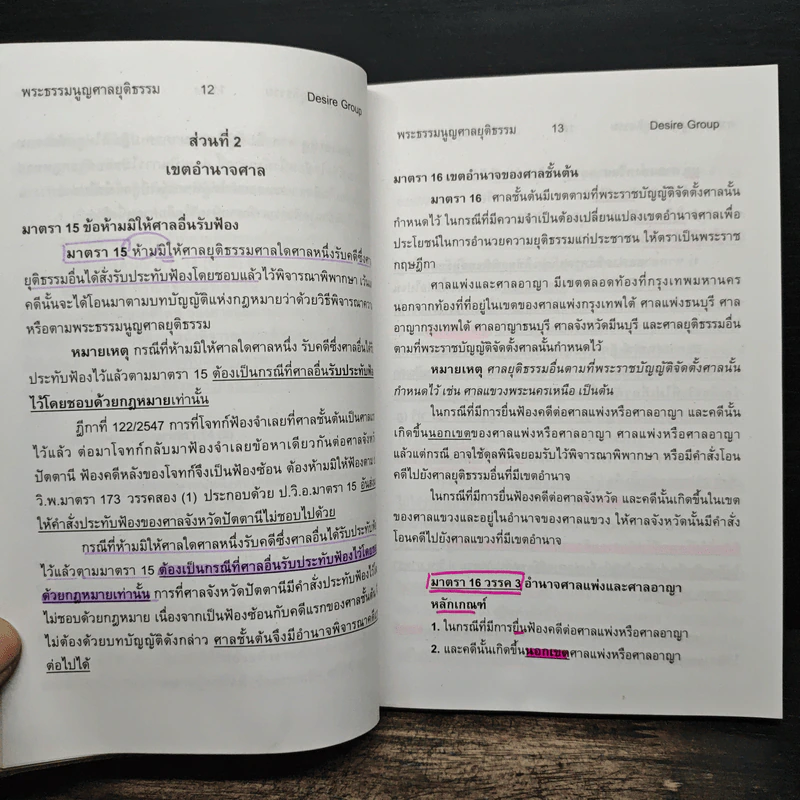 พระธรรมนูญศาลยุติธรรม 12 Desire Group
ส่วนที่ 2
เขตอำนาจศาล
มาตรา 15 ข้อห้ามมิให้ศาลอื่นรับฟ้อง
มาตรา 15 ห้ามมิให้ศาลยุติธรรมศาลใดศาลหนึ่งรับคดีซึ่งศา
ยุติธรรมอื่นได้สั่งรับประทับฟ้องโดยชอบแล้วไว้พิจารณาพิพากษา เว้น
คดีนั้นจะได้โอนมาตามบทบัญญัติแห่งกฎหมายว่าด้วยวิธีพิจารณาควา
หรือตามพระธรรมนูญศาลยุติธรรม
หมายเหตุ กรณีที่ห้ามมิให้ศาลใดศาลหนึ่ง รับคดีซึ่งศาลอื่นได้
ประทับฟ้องไว้แล้วตามมาตรา 15 ต้องเป็นกรณีที่ศาลอื่นรับประทับฟ้อง
ไว้โดยชอบด้วยกฎหมายเท่านั้น
ฎีกาที่ 122/2547 การที่โจทก์ฟ้องจำเลยที่ศาลชั้นต้นเป็นศาลแ
ไว้แล้ว ต่อมาโจทก์กลับมาฟ้องจำเลยข้อหาเดียวกันต่อศาลจังห
ปัตตานี ฟ้องคดีหลังของโจทก์จึงเป็นฟ้องซ้อน ต้องห้ามมิให้ฟ้องตาม
วิ.พ.มาตรา 173 วรรคสอง (1) ประกอบด้วย ป.วิ.อ.มาตรา 15 อันส่งผ
ให้คำสั่งประทับฟ้องของศาลจังหวัดปัตตานีไม่ชอบไปด้วย
กรณีที่ห้ามมิให้ศาลใดศาลหนึ่งรับคดีซึ่งศาลอื่นได้รับประทับฟ้
ไว้แล้วตามมาตรา 15 ต้องเป็นกรณีที่ศาลอื่นรับประทับฟ้องไว้โดยช
ด้วยกฎหมายเท่านั้น การที่ศาลจังหวัดปัตตานีมีคำสั่งประทับฟ้องไว้โ
ไม่ชอบด้วยกฎหมาย เนื่องจากเป็นฟ้องซ้อนกับคดีแรกของศาลชั้นต้
ไม่ต้องด้วยบทบัญญัติดังกล่าว ศาลชั้นต้นจึงมีอำนาจพิจารณาคดีนี้
ต่อไปได้
พระธรรมนูญศาลยุติธรรม 13 Desire Group
มาตรา 16 เขตอำนาจของศาลชั้นต้น
มาตรา 16 ศาลชั้นต้นมีเขตตามที่พระราชบัญญัติจัดตั้งศาลนั้น
กำหนดไว้ ในกรณีที่มีความจำเป็นต้องเปลี่ยนแปลงเขตอำนาจศาลเพื่อ
ประโยชน์ในการอำนวยความยุติธรรมแก่ประชาชน ให้ตราเป็นพระราช
กฤษฎีกา
ศาลแพ่งและศาลอาญา มีเขตตลอดท้องที่กรุงเทพมหานคร
นอกจากท้องที่ที่อยู่ในเขตของศาลแพ่งกรุงเทพใต้ ศาลแพ่งธนบุรี ศาล
อาญากรุงเทพใต้ ศาลอาญาธนบุรี ศาลจังหวัดมีนบุรี และศาลยุติธรรมอื่น
ตามที่พระราชบัญญัติจัดตั้งศาลนั้นกำหนดไว้
หมายเหตุ ศาลยุติธรรมอื่นตามที่พระราชบัญญัติจัดตั้งศาลนั้น
กำหนดไว้ เช่น ศาลแขวงพระนครเหนือ เป็นต้น
ในกรณีที่มีการยื่นฟ้องคดีต่อศาลแพ่งหรือศาลอาญา และคดีนั้น
เกิดขึ้นนอกเขตของศาลแพ่งหรือศาลอาญา ศาลแพ่งหรือศาลอาญา
แล้วแต่กรณี อาจใช้ดุลพินิจยอมรับไว้พิจารณาพิพากษา หรือมีคำสั่งโอน
คดีไปยังศาลยุติธรรมอื่นที่มีเขตอำนาจ
ในกรณีที่มีการยื่นฟ้องคดีต่อศาลจังหวัด และคดีนั้นเกิดขึ้นในเขต
ของศาลแขวงและอยู่ในอำนาจของศาลแขวง ให้ศาลจังหวัดนั้นมีคำสั่ง
โอนคดีไปยังศาลแขวงที่มีเขตอำนาจ
มาตรา 16 วรรค 3 อำนาจศาลแพ่งและศาลอาญา
หลักเกณฑ์
1. ในกรณีที่มีการยื่นฟ้องคดีต่อศาลแพ่งหรือศาลอาญา
2. และคดีนั้นเกิดขึ้นนอกเขตศาลแพ่งหรือศาลอาญา